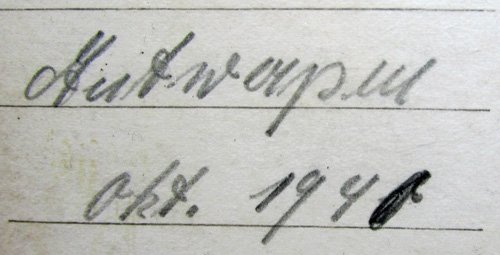 Antwerpen
Okt. 1940